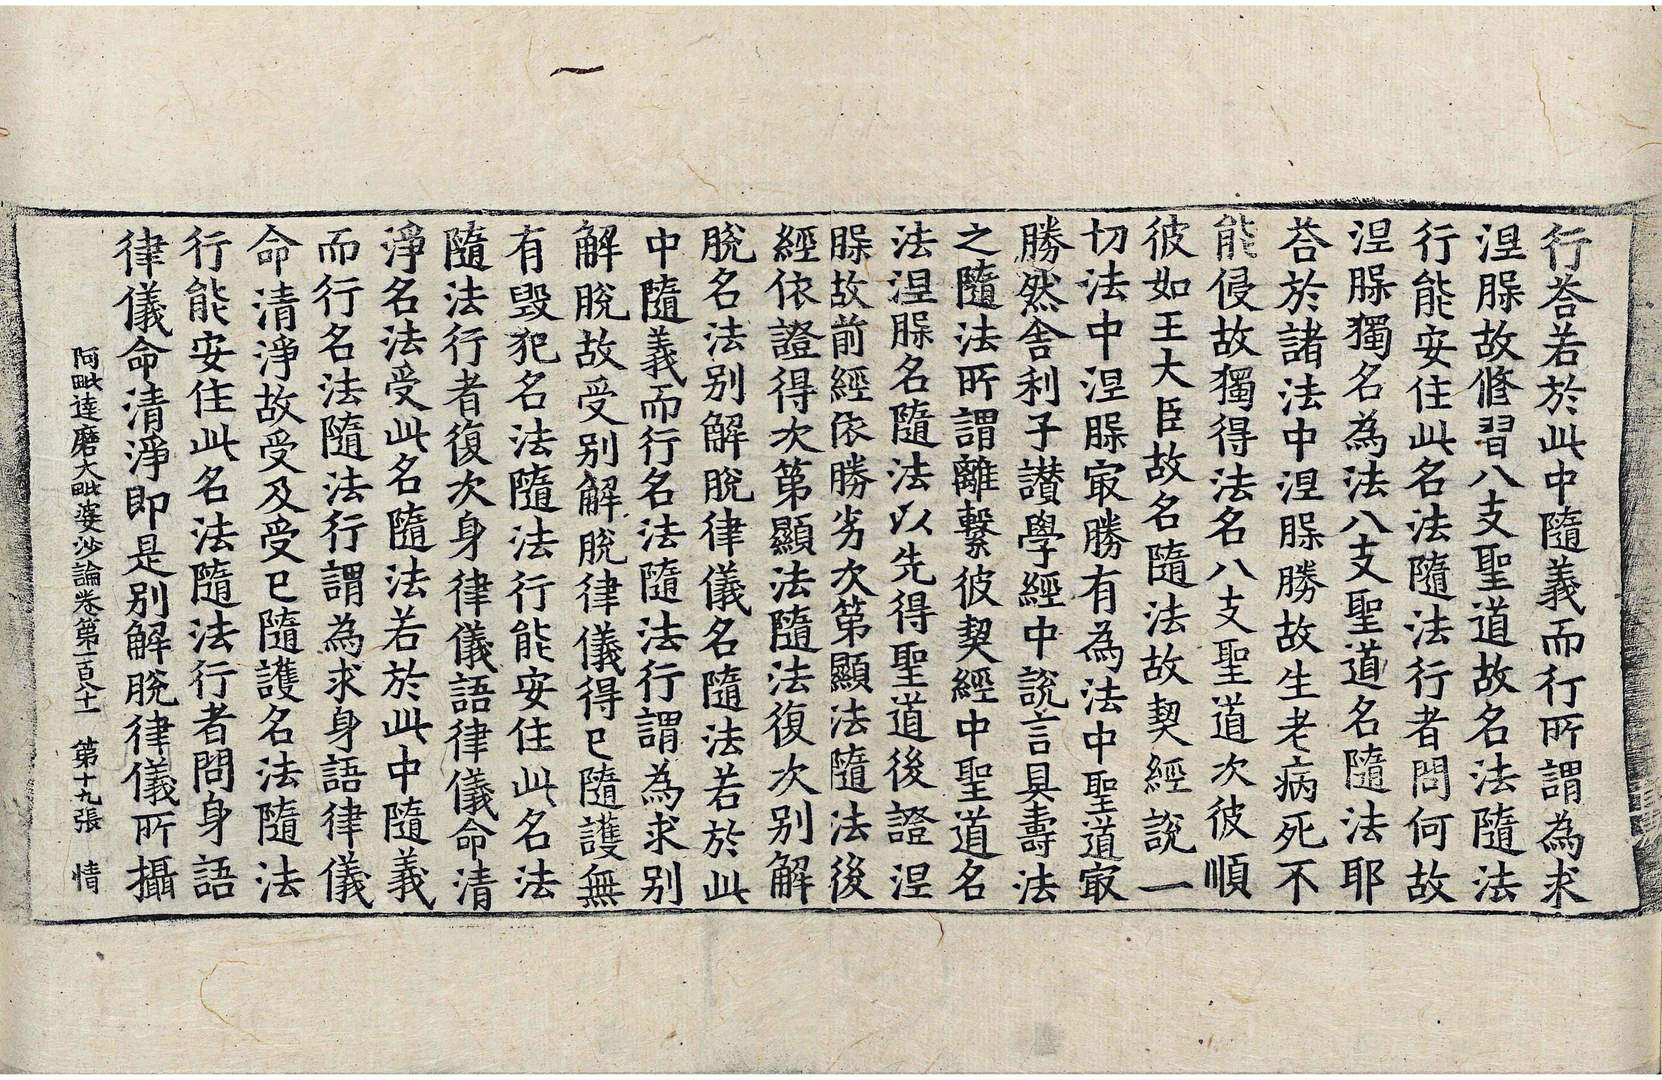 行荅若於此中隨義而行所謂為求
涅槃故修習八支聖道故名法隨法
行能安住此名法隨法行者問何故
涅槃獨名為法八支聖道名隨法耶
荅於諸法中涅槃勝故生老病死不
能侵故獨得法名八支聖道次彼順
彼如王大臣故名隨法故契經說一
切法中涅槃㝡勝有為法中聖道㝡
勝然舍利子讃學經中說言具壽法
之隨法所謂離繫彼契經中聖道名
法涅槃名隨法以先得聖道後證涅
槃故前經依勝劣次第顯法隨法後
經依證得次第顯法隨法復次別解
脫名法別解脫律儀名隨法若於此
中隨義而行名法隨法行謂為求別
解脫故受別解脫律儀得已隨護無
有毀犯名法隨法行能安住此名法
隨法行者復次身律儀語律儀命清
淨名法受此名隨法若於此中隨義
而行名法隨法行謂為求身語律儀
命清淨故受及受已隨護名法隨法
行能安住此名法隨法行者問身語
律儀命清淨即是別解脫律儀所攝
阿毗達磨大毗婆沙論卷第一百八十一 第十九張 情